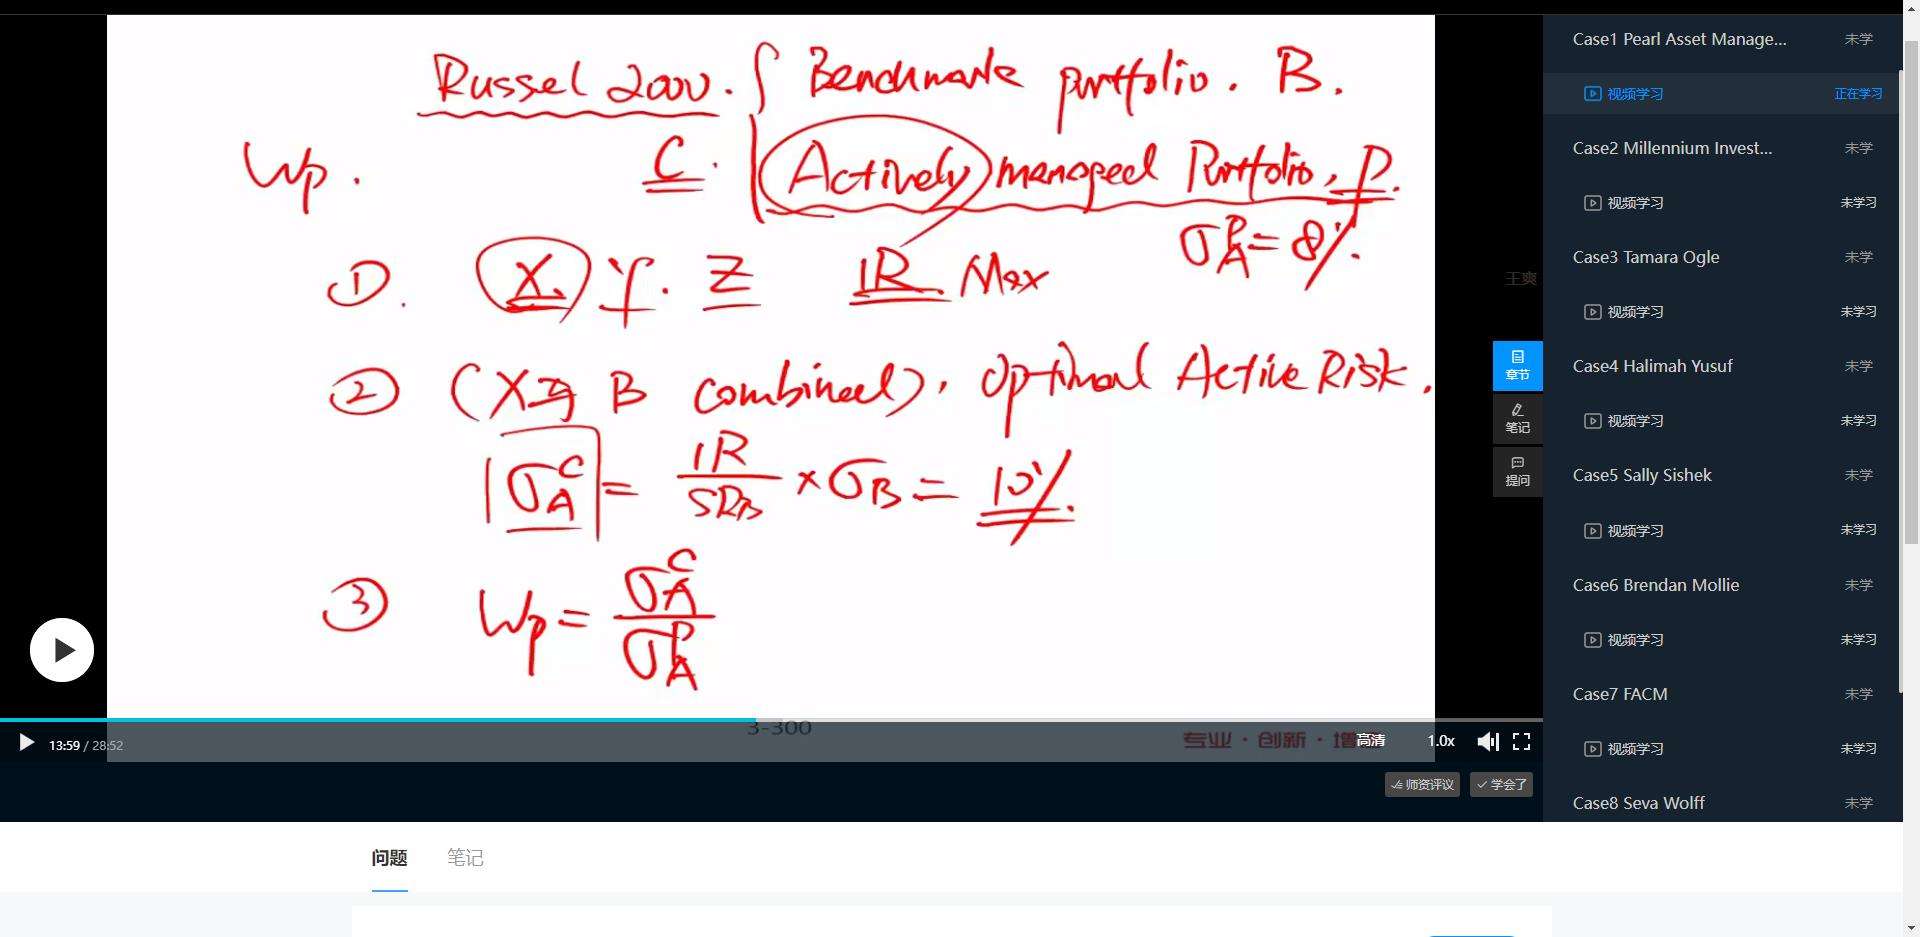 Russel 2000. Benchmark portfolio. B.
Wp. C. Actively managed Portfolio, P.
σ_A^P = 8%.
①. X. Y. Z IR Max
② (X与 B combined), optimal Active Risk.
σ_A^C = IR/SR_B × σ_B = 10%.
③ Wp = σ_A^C / σ_A^P
3-300
专业·创新·增
13:59 / 28:52
高清
1.0x
师资评议
学会了
王爽
章节
笔记
提问
Case1 Pearl Asset Manage... 未学
视频学习 正在学习
Case2 Millennium Invest... 未学
视频学习 未学习
Case3 Tamara Ogle 未学
视频学习 未学习
Case4 Halimah Yusuf 未学
视频学习 未学习
Case5 Sally Sishek 未学
视频学习 未学习
Case6 Brendan Mollie 未学
视频学习 未学习
Case7 FACM 未学
视频学习 未学习
Case8 Seva Wolff 未学
问题 笔记